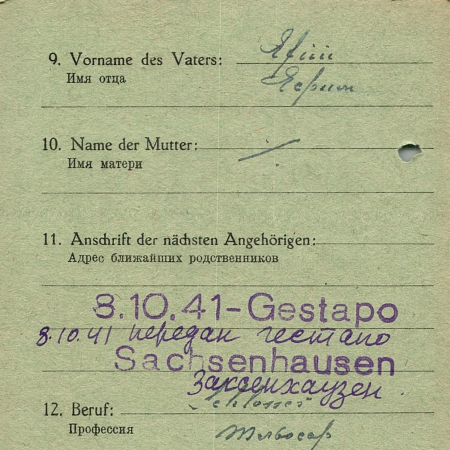 9. Vorname des Vaters: Jefim
Имя отца Ефим
10. Name der Mutter: ·/·
Имя матери
11. Anschrift der nächsten Angehörigen:
Адрес ближайших родственников
8.10.41-Gestapo
8.10.41 передан гестапо
Sachsenhausen
Заксенхаузен
12. Beruf: Schlosser
Профессия